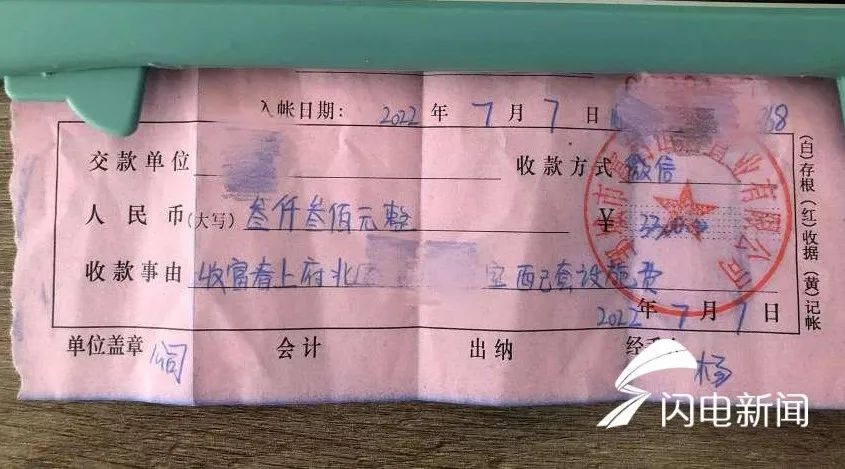 入帐日期: 2022年7月7日 68
交款单位 收款方式 微信
人民币(大写) 叁仟叁佰元整 ¥ 3300.00
收款事由 收富春上府北 室配套设施费
2022年7月7日
单位盖章 公司 会计 出纳 杨
(白)存根 (红)收据 (黄)记帐
市 业有限公司
闪电新闻